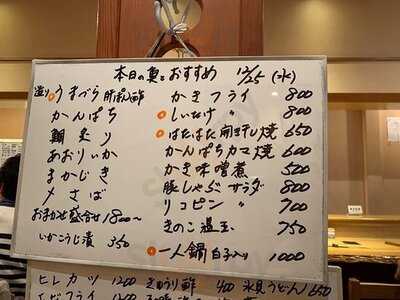 本日の真のおすすめ 12/25 (水)
造り うまづら 肝ぽん酢
かんぱち
鯛 炙り
あおりいか
まかじき
〆さば
おまかせ盛合せ 1800〜
いかこうじ漬 350
かきフライ 800
しいたけ 〃 800
はたはた開き干し焼 650
かんぱちカマ焼 600
かき味噌煮 500
豚しゃぶサラダ 800
リコピン 〃 700
きのこ温玉 750
一人鍋 白子入り 1000
ヒレカツ 1200
きゅうり酢 400
氷見うどん 650
エビフライ